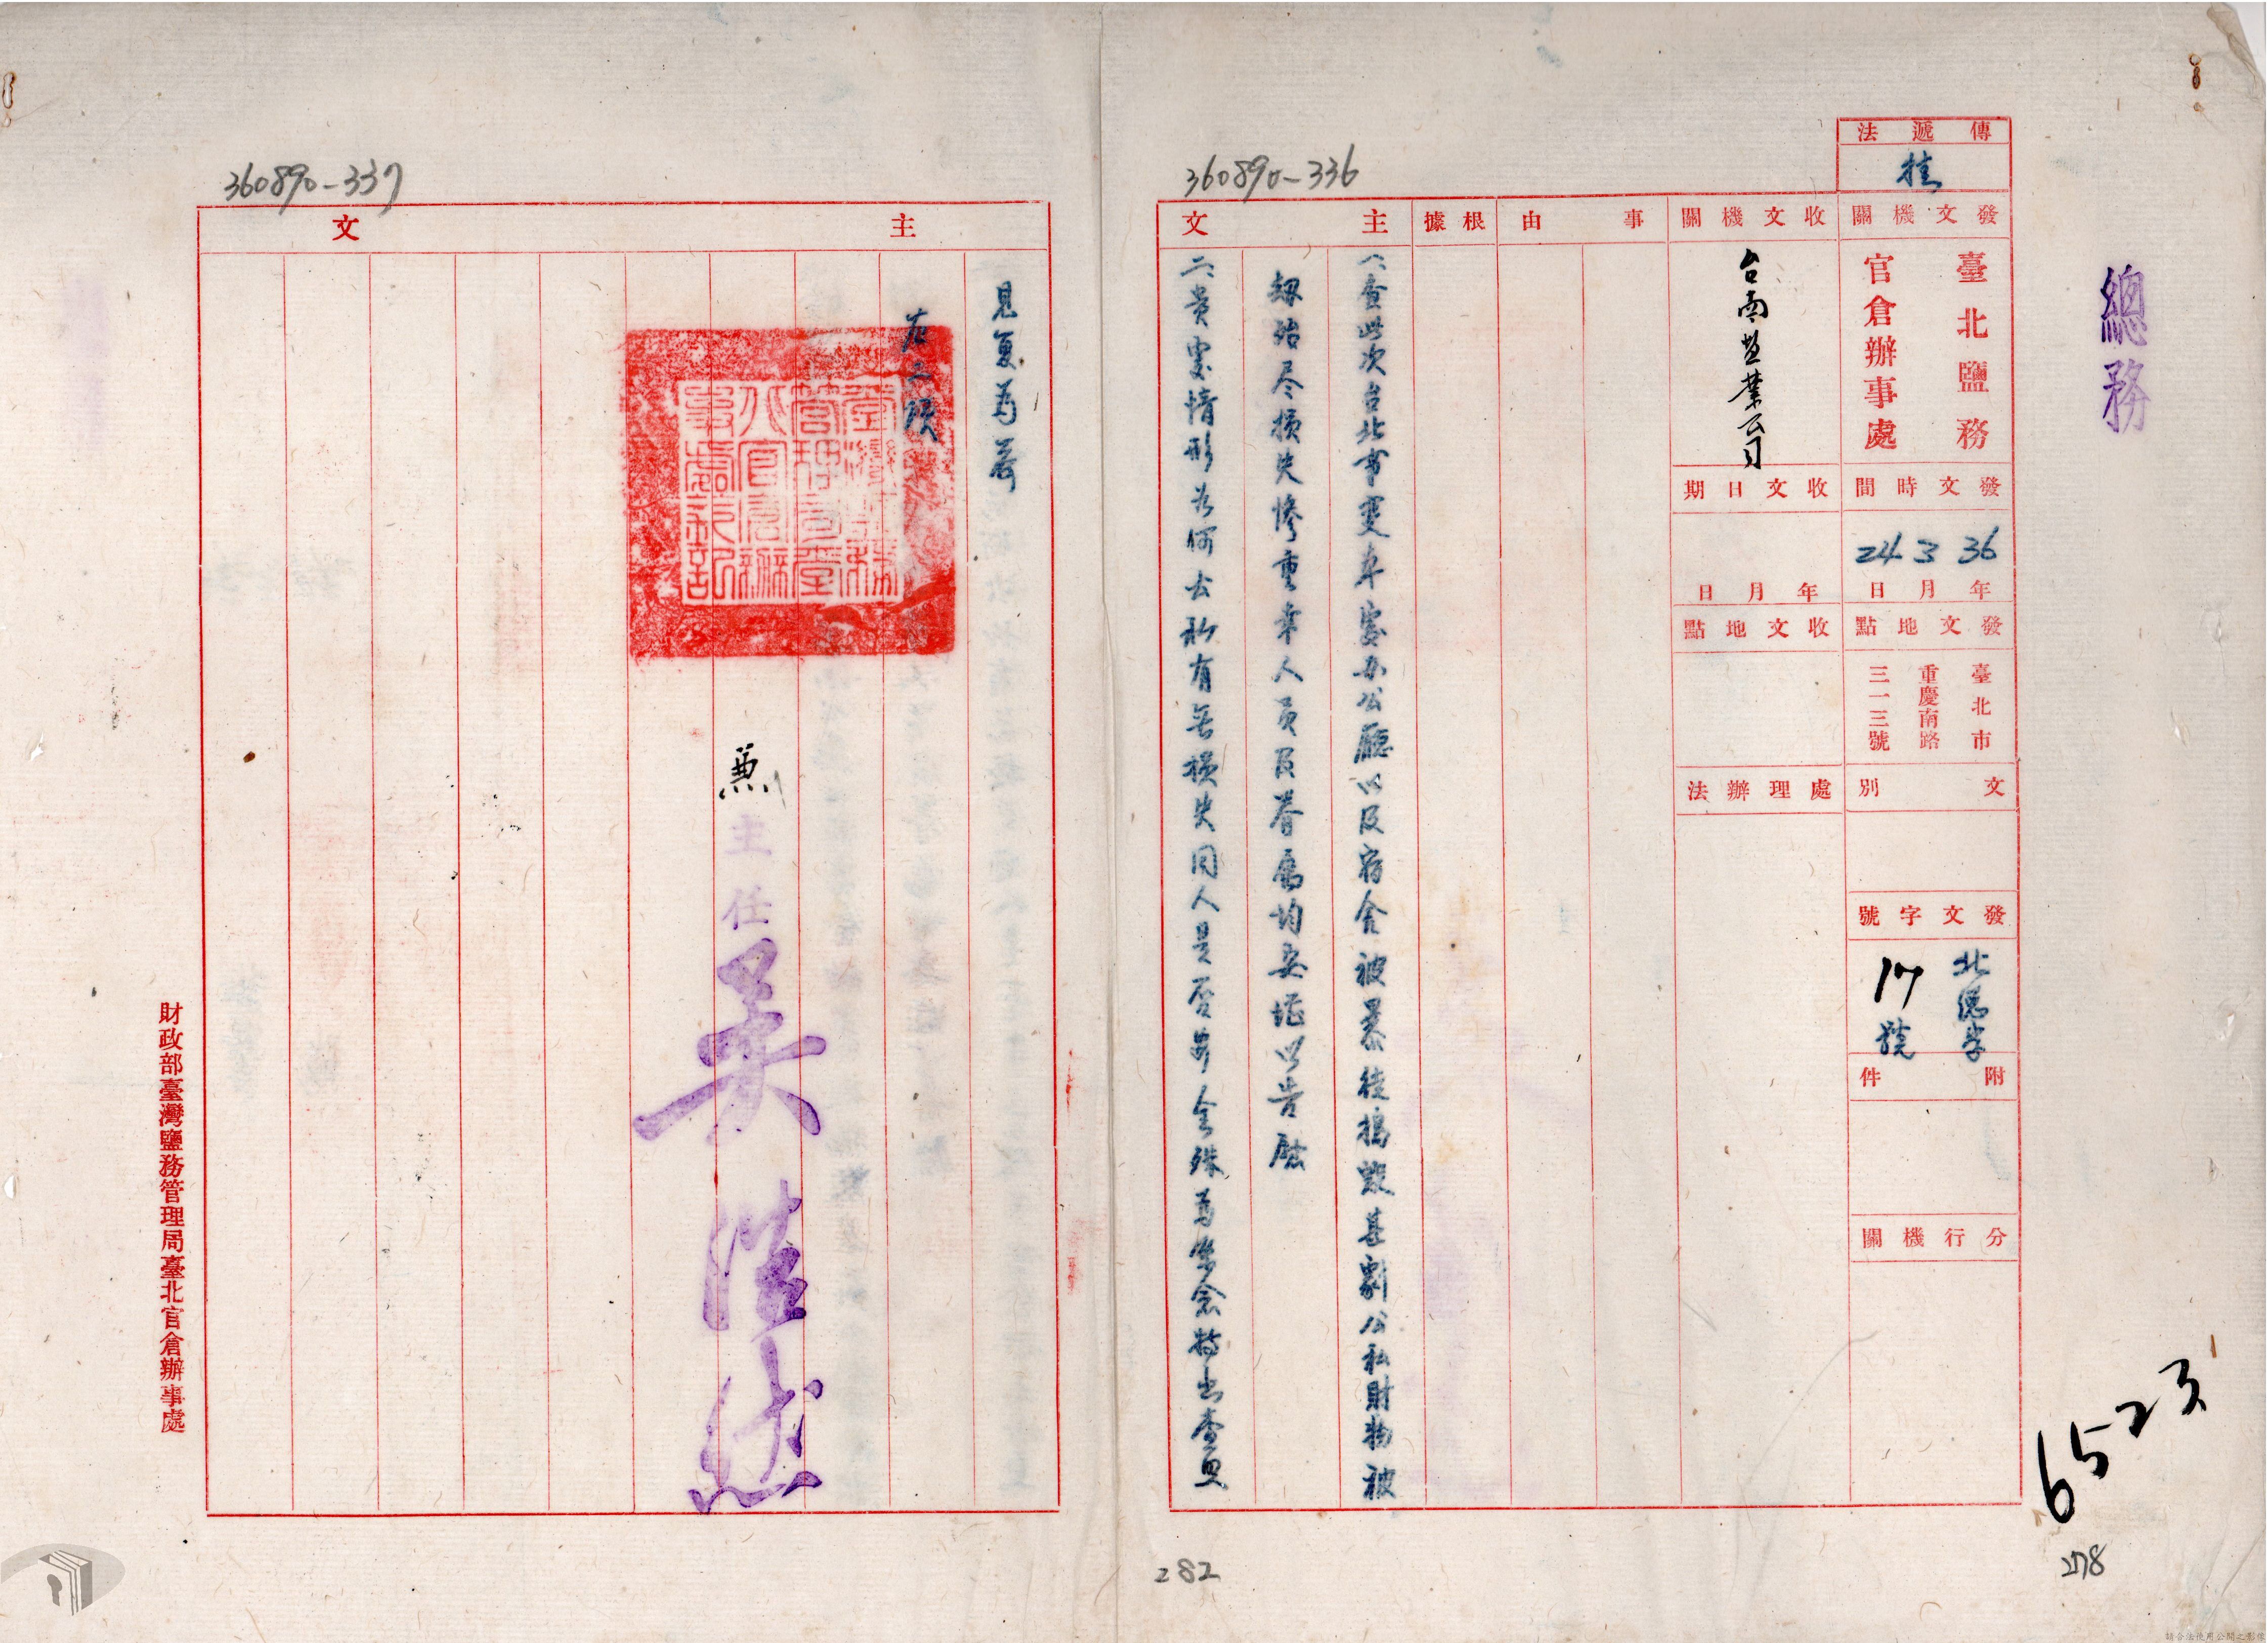 總務
傳遞法
掛
發文機關
臺北鹽務
官倉辦事處
發文時間
36年3月24日
發文地點
臺北市
重慶南路
三一三號
文別
發文字號
北總字
17號
附件
分行機關
收文機關
台南盐業公司
收文日期
年月日
收文地點
處理辦法
事由
根據
主文
一、查此次台北市变本处办公廳以及宿舍被暴徒搗毀甚劇公私財物被
劫殆尽損失慘重幸人員及眷屬均安堪以告慰
二、貴處情形為何公私有無損失同人是否安全殊為縈念特出查照
360890-336
282
6523
278
360890-337
主文
見复為荷
右二項
臺灣鹽務
管理局臺
北官倉辦
事處鈐記
兼
主任
財政部臺灣鹽務管理局臺北官倉辦事處
請合法使用公開之影像